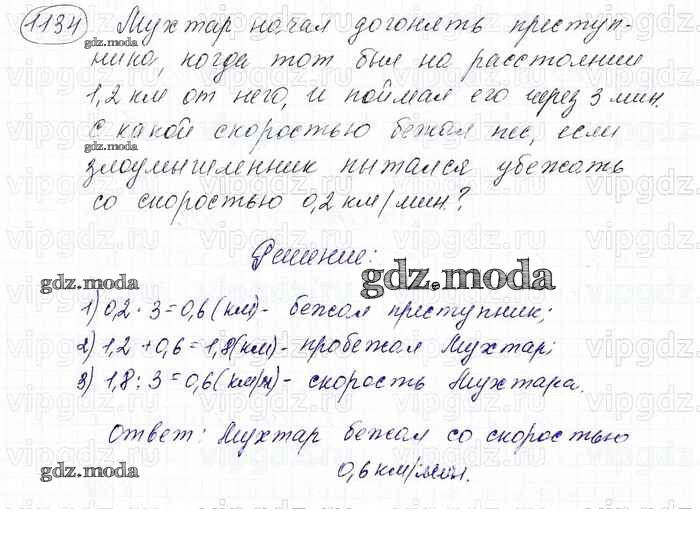 1134 Мухтар начал догонять преступ-
gdz.moda
ника, когда тот был на расстоянии
1,2 км от него, и поймал его через 3 мин.
С какой скоростью бежал пес, если
gdz.moda
злоумышленник пытался убежать
со скоростью 0,2 км/мин.?
Решение:
gdz.moda
gdz.moda
1) 0,2 · 3 = 0,6 (км) - бежал преступник;
2) 1,2 + 0,6 = 1,8 (км) - пробежал Мухтар;
3) 1,8 : 3 = 0,6 (км/м) - скорость Мухтара.
Ответ: Мухтар бежал со скоростью
gdz.moda
0,6 км/мин.
vipgdz.ru